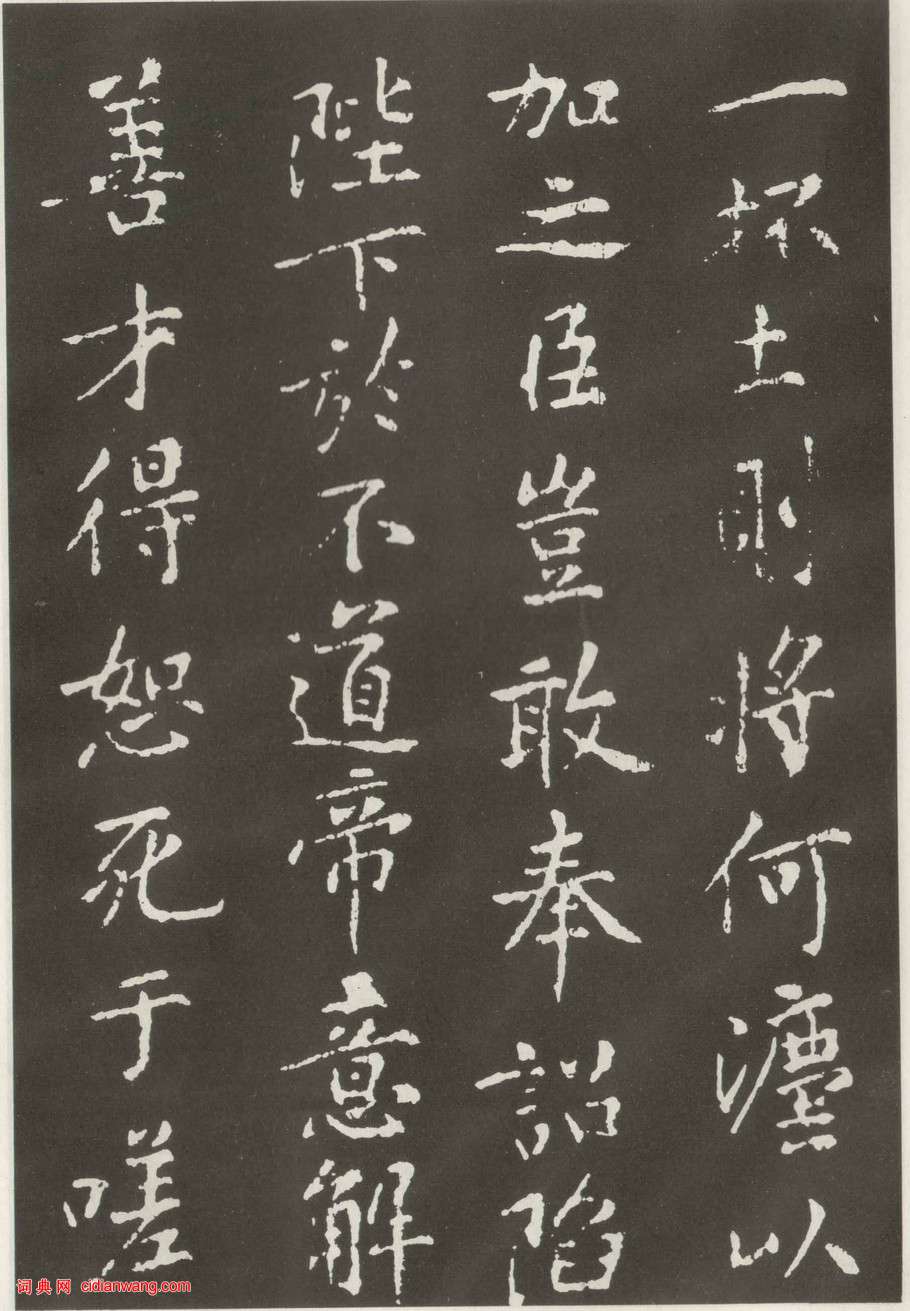 一抔土則將何灋以
加之臣豈敢奉詔陷
陛下於不道帝意解
善才得恕死于嗟
词典网 cidianwang.com